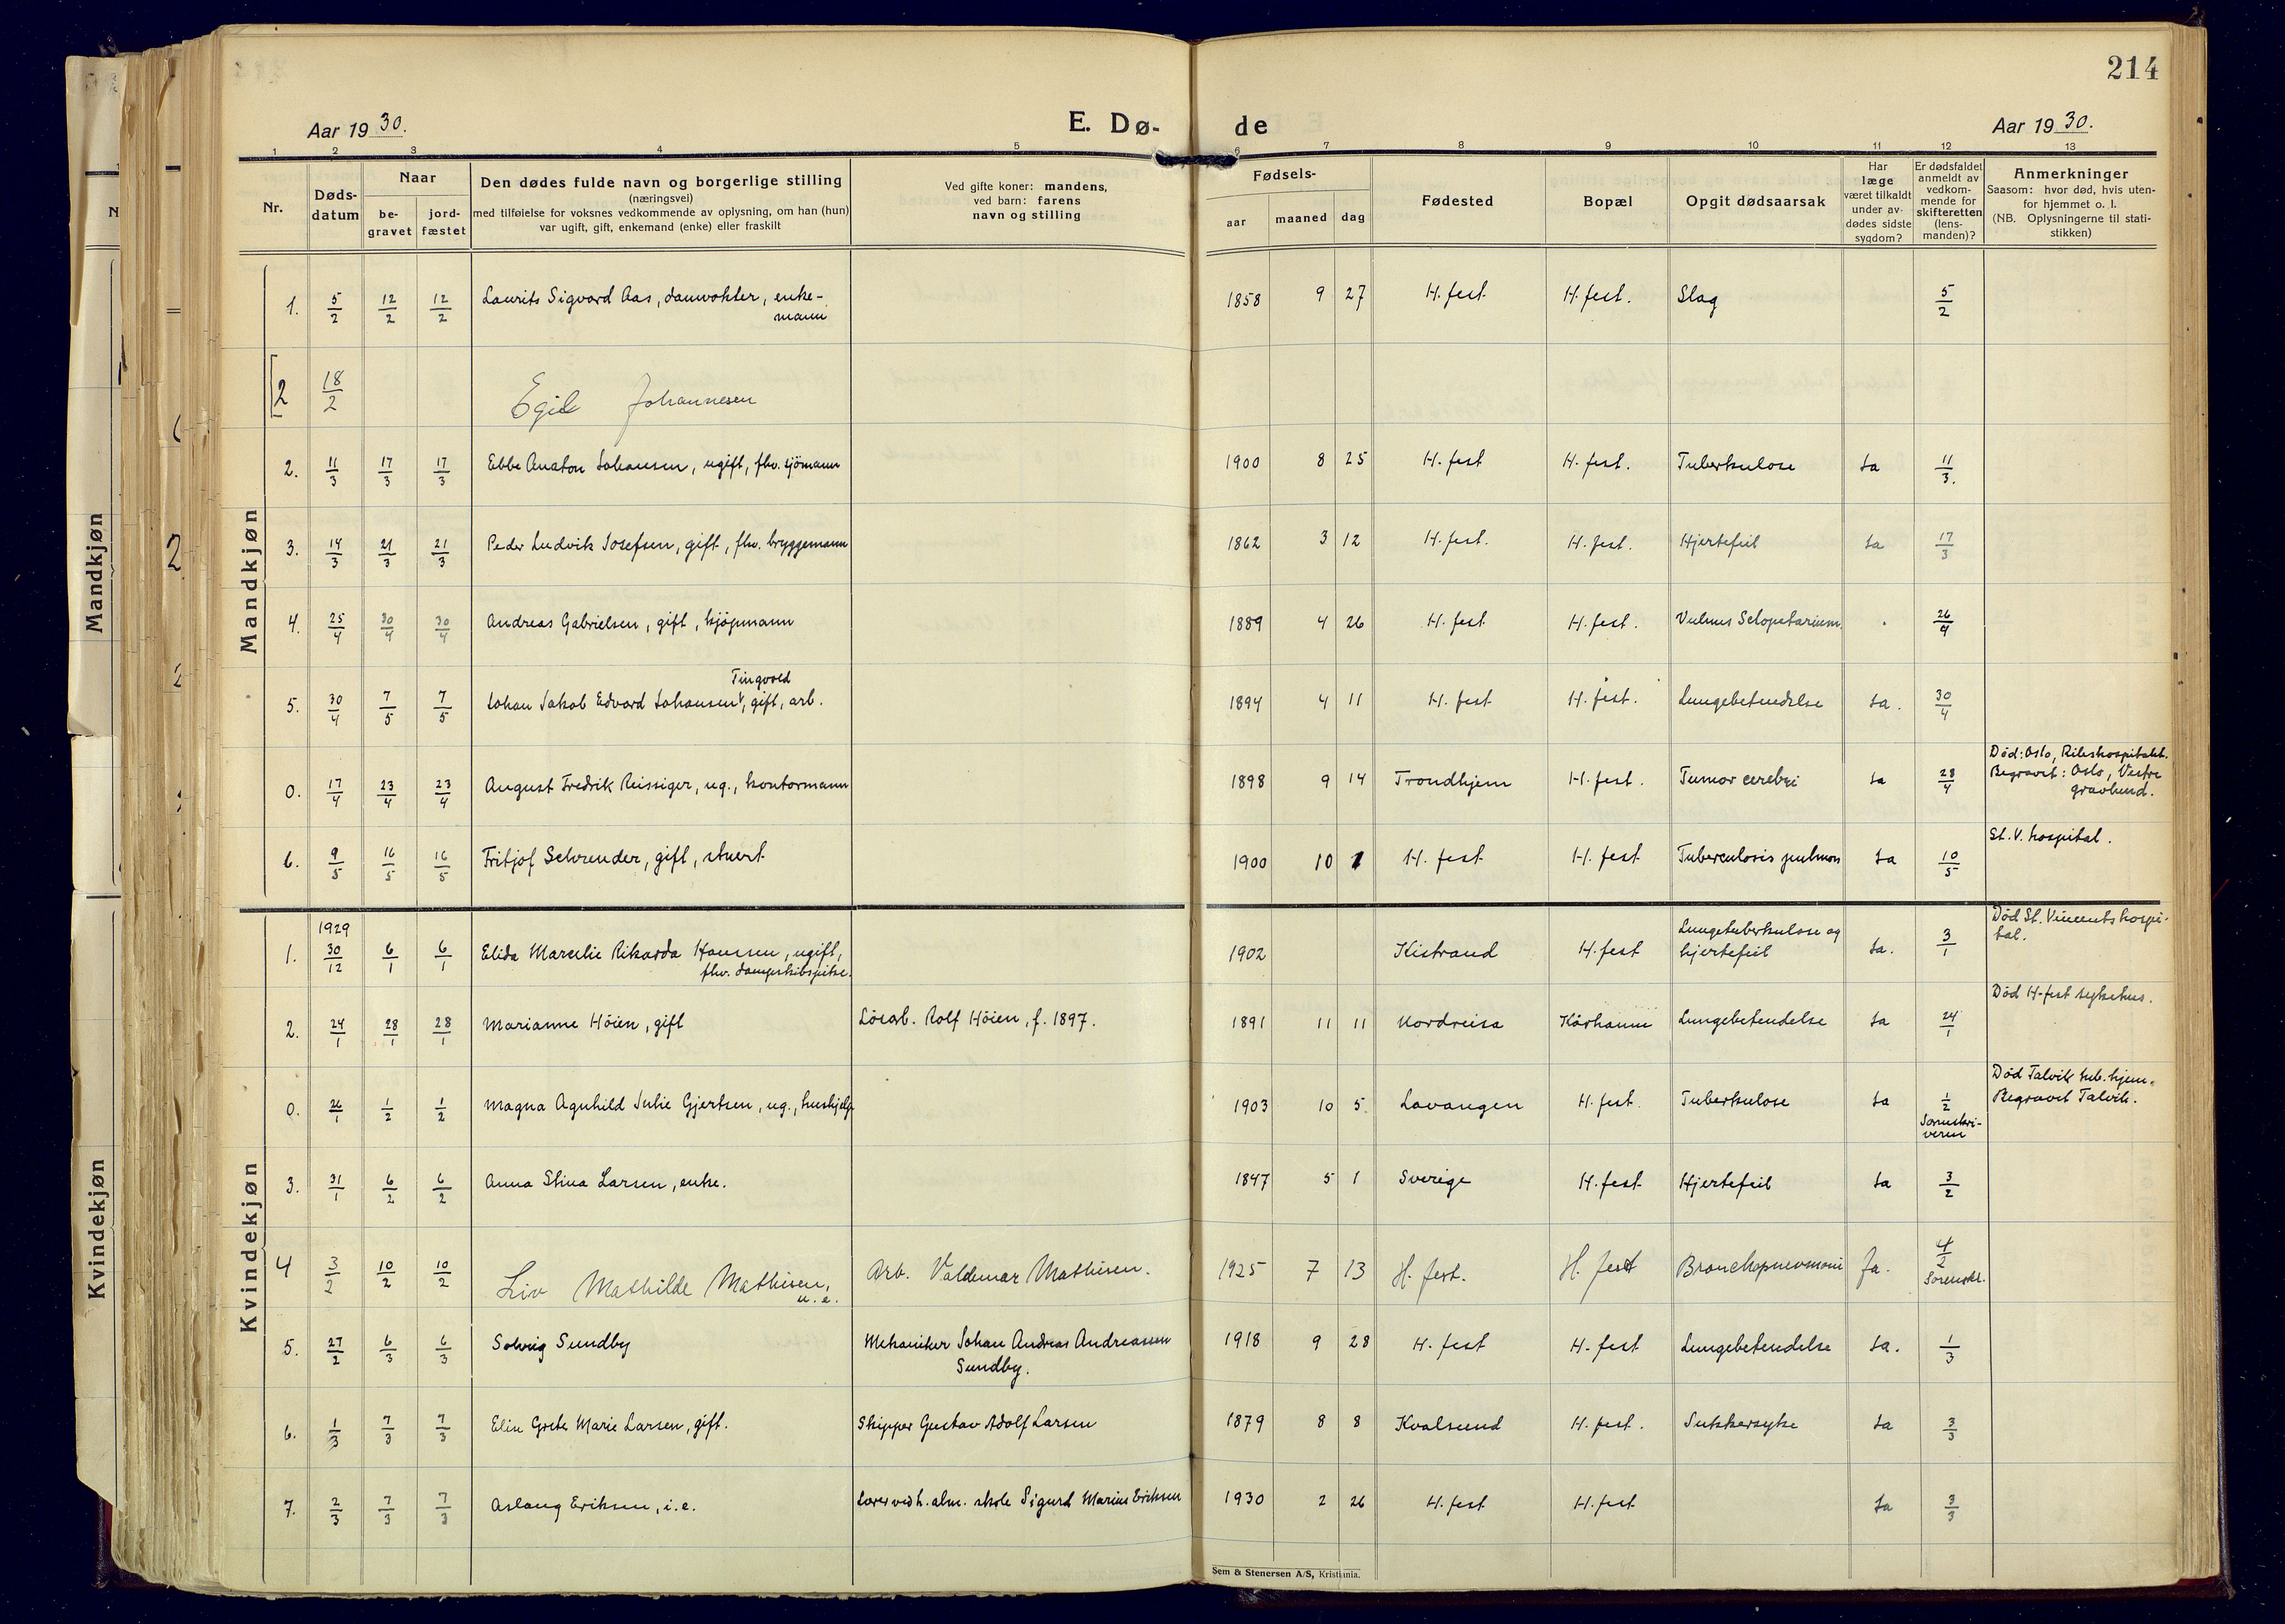 214
Aar 1930.
E. Dø- de
Aar 1930.
1 2 3 4 5 6 7 8 9 10 11 12 13
Nr.
Døds-
datum
Naar
be-
gravet
jord-
fæstet
Den dødes fulde navn og borgerlige stilling
(næringsvei)
med tilføielse for voksnes vedkommende av oplysning, om han (hun)
var ugift, gift, enkemand (enke) eller fraskilt
Ved gifte koner: mandens,
ved barn: farens
navn og stilling
Fødsels-
aar maaned dag
Fødested
Bopæl
Opgit dødsaarsak
Har
læge
været tilkaldt
under av-
dødes sidste
sygdom?
Er dødsfaldet
anmeldt av
vedkom-
mende for
skifteretten
(lens-
manden)?
Anmerkninger
Saasom: hvor død, hvis uten-
for hjemmet o. l.
(NB. Oplysningerne til stati-
stikken)
Mandkjøn
1. 5/2 12/2 12/2 Laurits Sigvard Aas, damvokter, enke-
mann
1858 9 27 H.fest H.fest. Slag 5/2
[2 18/2 Egil Johannesen
2. 11/3 17/3 17/3 Ebbe Anaton Johansen, ugift, fhv. sjömann 1900 8 25 H.fest H.fest. Tuberkulose Ja 11/3.
3. 14/3 21/3 21/3 Peder Ludvik Josefsen, gift, fhv. bryggemann 1862 3 12 H.fest. H.fest. Hjertefeil Ja 17/3
4. 25/4 30/4 30/4 Andreas Gabrielsen, gift, kjöpmann 1889 4 26 H.fest H.fest. Vulnus Sclopetarium. 26/4
Tingvold
5. 30/4 7/5 7/5 Johan Jakob Edvard Johansen, gift, arb. 1894 4 11 H.fest H.fest. Lungebetendelse Ja. 30/4
0. 17/4 23/4 23/4 August Fredrik Reissiger, ug., kontormann 1898 9 14 Trondhjem H.fest. Tumor cerebri Ja 28/4
Död: Oslo, Rikshospitalet.
Begravet: Oslo, Vestre
gravlund.
6. 9/5 16/5 16/5 Fritjof Schrender, gift, stuert 1900 10 1 H.fest H.fest Tuberculosis pulmon Ja 10/5
St. V. hospital.
Kvindekjøn
1929
1. 30/12 6/1 6/1 Elida Marcelie Rikarda Hansen, ugift,
fhv. dampskibspike.
1902 Kistrand H.fest Lungetuberkulose og
hjertefeil
Ja. 3/1
Död St. Vincents hospi-
tal.
2. 24/1 28/1 28/1 Marianne Höien, gift Lösarb. Rolf Höien, f. 1897. 1891 11 11 Nordreisa Kårhamn Lungebetendelse Ja 24/1
Död H-fest sykehus.
0. 26/1 1/2 1/2 Magna Agnhild Julie Gjertsen, ug., hushjelp 1903 10 5. Lavangen H.fest. Tuberkulose Ja 1/2
Sorenskri-
veren
Död Talvik tub.hjem.
Begravet Talvik.
3. 31/1 6/2 6/2 Anna Stina Larsen, enke. 1847 5 1 Sverige H.fest Hjertefeil Ja 3/2
4 3/2 10/2 10/2 Liv Mathilde Mathisen,
u.e.
Arb. Valdemar Mathisen. 1925 7 13 H.fest. H.fest Bronchopneumoni Ja. 4/2
Sorenskr.
5. 27/2 6/3 6/3 Solveig Sundby Mekaniker Johan Andreas Andreassen
Sundby.
1918 9 28 H.fest H.fest Lungebetendelse Ja. 1/3
6. 1/3 7/3 7/3 Elin Grete Marie Larsen, gift. Skipper Gustav Adolf Larsen 1879 8 8 Kvalsund H.fest. Sukkersyke Ja 3/3
7. 2/3 7/3 7/3 Aslaug Eriksen, i.e. Lærer ved h. alm. skole Sigurd Marius Eriksen 1930 2 26 H.fest H.fest Ja 3/3
Sem & Stenersen A/S, Kristiania.
Mandkjøn
Kvindekjøn